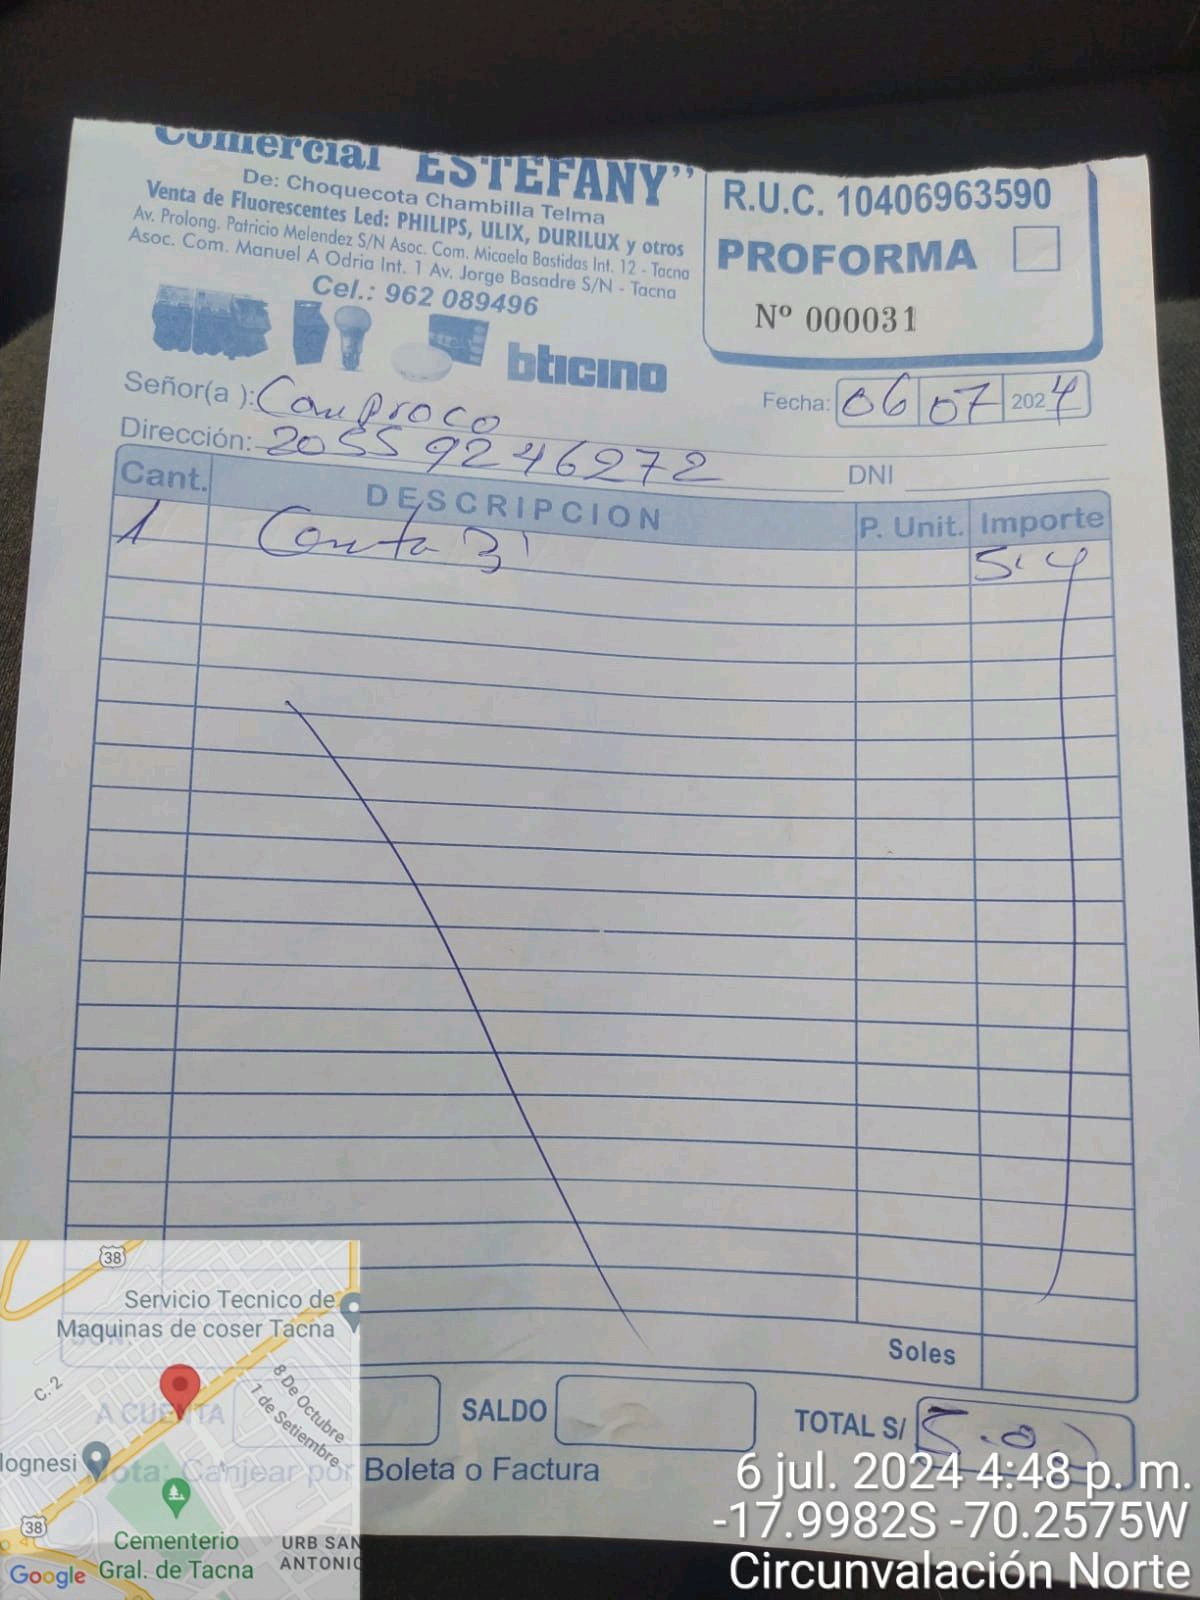 Comercial "ESTEFANY"
De: Choquecota Chambilla Telma
Venta de Fluorescentes Led: PHILIPS, ULIX, DURILUX y otros
Av. Prolong. Patricio Melendez S/N Asoc. Com. Micaela Bastidas Int. 12 - Tacna
Asoc. Com. Manuel A Odria Int. 1 Av. Jorge Basadre S/N - Tacna
Cel.: 962 089496
bticino
R.U.C. 10406963590
PROFORMA
Nº 000031
Señor(a): Comproco
Fecha: 06 07 2024
Dirección: 20559246272 DNI
Cant. DESCRIPCION P. Unit. Importe
1
Soles
A CUENTA SALDO TOTAL S/
Nota: Canjear por Boleta o Factura
38
Servicio Tecnico de
Maquinas de coser Tacna
C. 2
8 De Octubre
1 de Setiembre
lognesi
38
Cementerio
Gral. de Tacna
URB SAN
ANTONIO
Google
6 jul. 2024 4:48 p. m.
-17.9982S -70.2575W
Circunvalación Norte